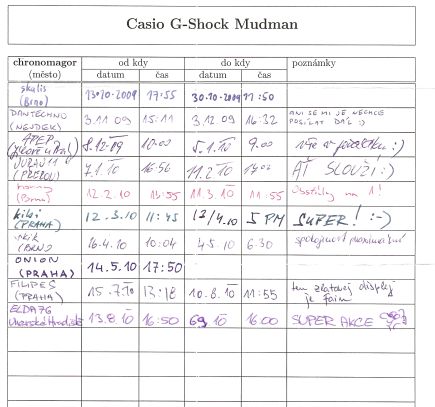 Casio G-Shock Mudman
chronomagor od kdy do kdy poznámky
(město) datum čas datum čas
skulis
(Brno) 13.10.2009 17:55 30.10.2009 17:50
DANTECHNO ANI SE MI JE NECHCE
(NEJDEK) 3.11.09 15:11 3.12.09 16:32 POSÍLAT DÁL :)
8.12.09 10.00 5.1.10 9.00 vše v :)
7.1.10 16:56 11.2.10 AŤ SLOUŽÍ :)
(Brno) 12.2.10 15:55 11.3.10 11:55 na 1!
(PRAHA) 12.3.10 11:45 13/4.10 5 PM SUPER! :-)
(BRNO) 16.4.10 10:04 4.5.10 6.30 spokojenost
ONION
(PRAHA) 14.5.10 17:50
FILIPES ten zlatavej displej
(PRAHA) 15.7.10 10.8.10 11:55 je fajn
ELDA76
Uherské Hradiště 13.8.10 16:50 16:00 SUPER AKCE